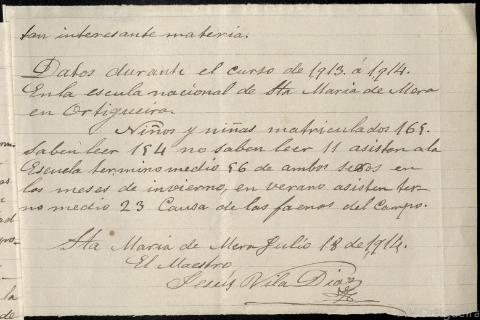 tan interesante materia.
Datos durante el curso de 1913. á 1914.
En la escula nacional de Sta Maria de Mera
en Ortigueira.
Niños y niñas matriculados 165.
Saben leer 154 no saben leer 11 asisten a la
Escuela termino medio 56 de ambos sexos en
los meses de invierno, en verano asisten ter-
no medio 23 Causa de las faenas del campo.
Sta Maria de Mera Julio 18 de 1914.
El Maestro
Jesús Vila Diaz